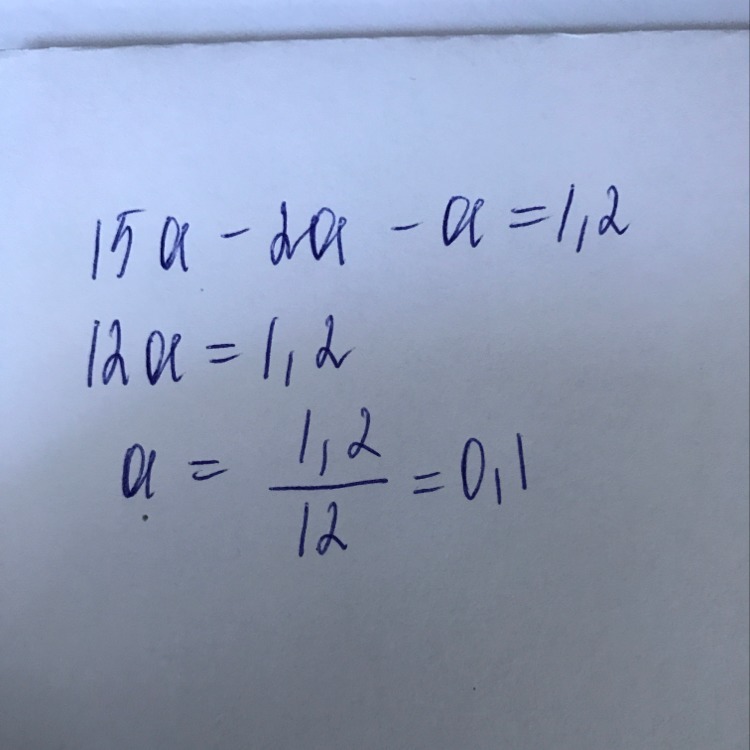 15a - 2a - a = 1,2
12a = 1,2
a = 1,2/12 = 0,1